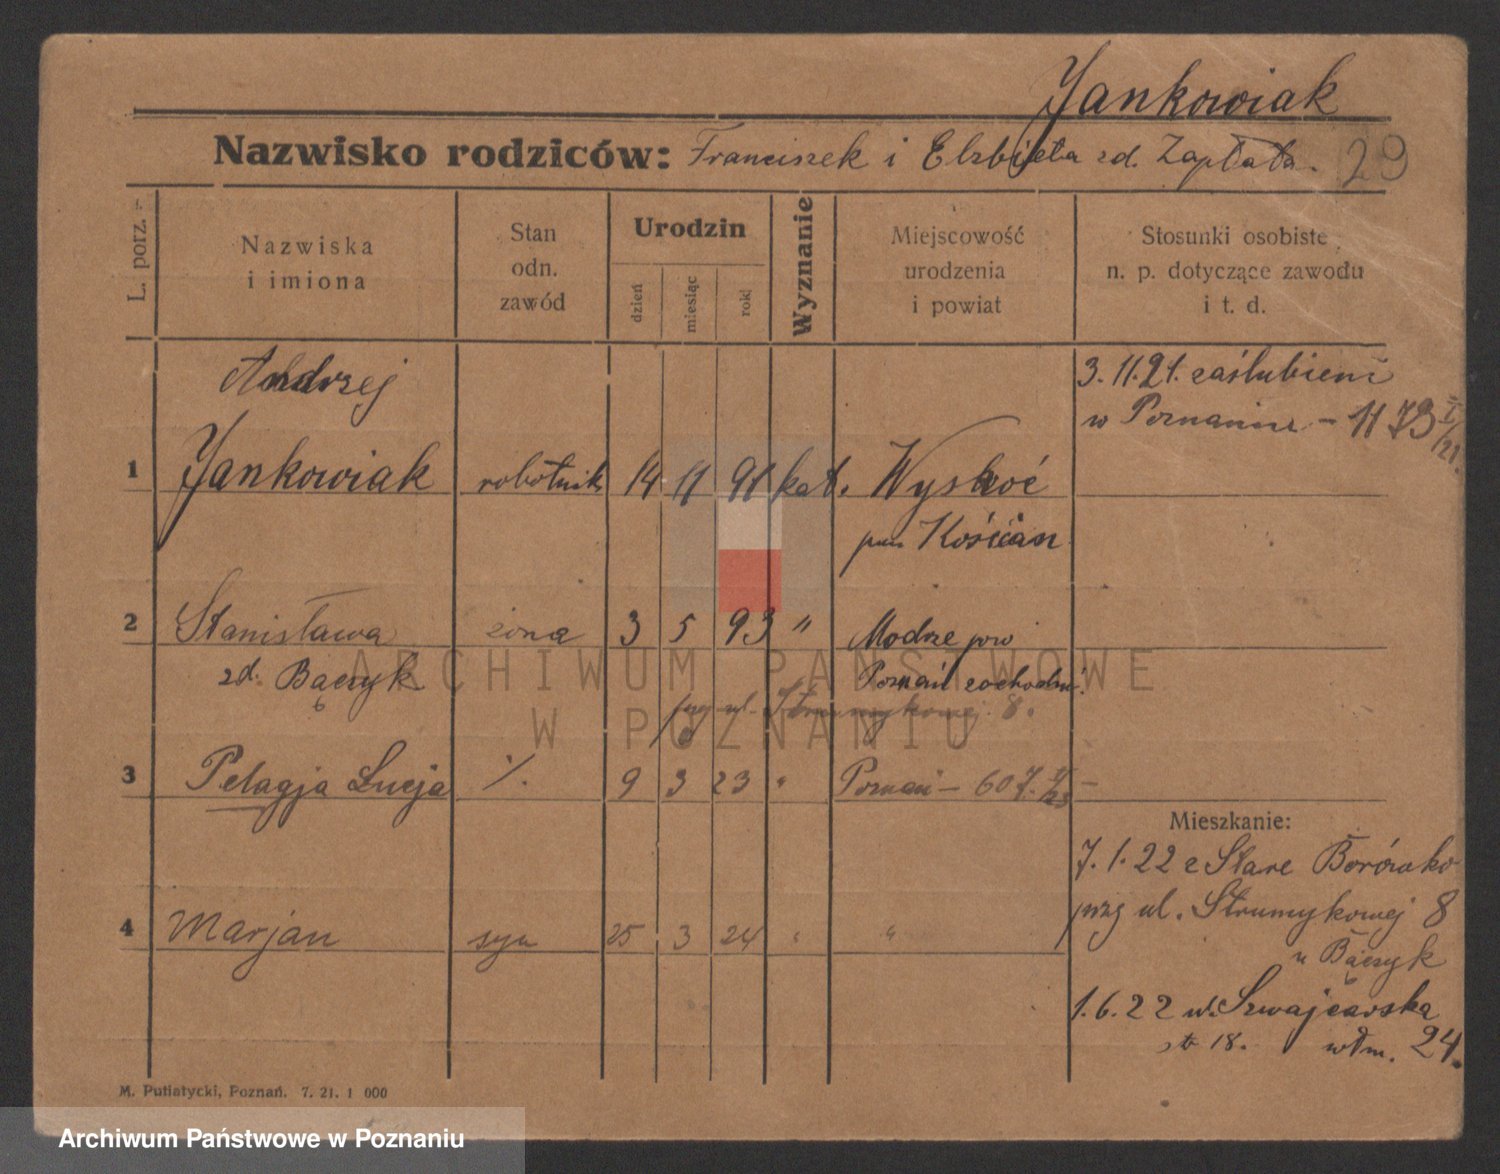 Jankowiak
Nazwisko rodziców: Franciszek i Elżbieta zd. Zapłata. 29
L. porz.
Nazwiska
i imiona
Stan
odn.
zawód
Urodzin
dzień
miesiąc
rok
Wyznanie
Miejscowość
urodzenia
i powiat
Stosunki osobiste
n. p. dotyczące zawodu
i t. d.
Andrzej
1 Jankowiak robotnik 14 11 91 kat. Wyskoć
pow. Kościan
3. 11. 21. zaślubieni
w Poznaniu – 1173 I/21.
2 Stanisława żona 3 5 93 " Modrze pow
zd. Bączyk Poznań zachodni.
przy ul. Strumykowej 8.
3 Pelagja Łucja /. 9 3 23 " Poznań – 607. II/23 –
4 Marjan syn 25 3 24 " "
Mieszkanie:
7. 1. 22 z Stare Borówko
przy ul. Strumykowej 8
u Bączyk
1. 6. 22 ul. Szwajcarska
18. włm. 24.
M. Putiatycki, Poznań. 7. 21. 1 000
ARCHIWUM PAŃSTWOWE
W POZNANIU
Archiwum Państwowe w Poznaniu